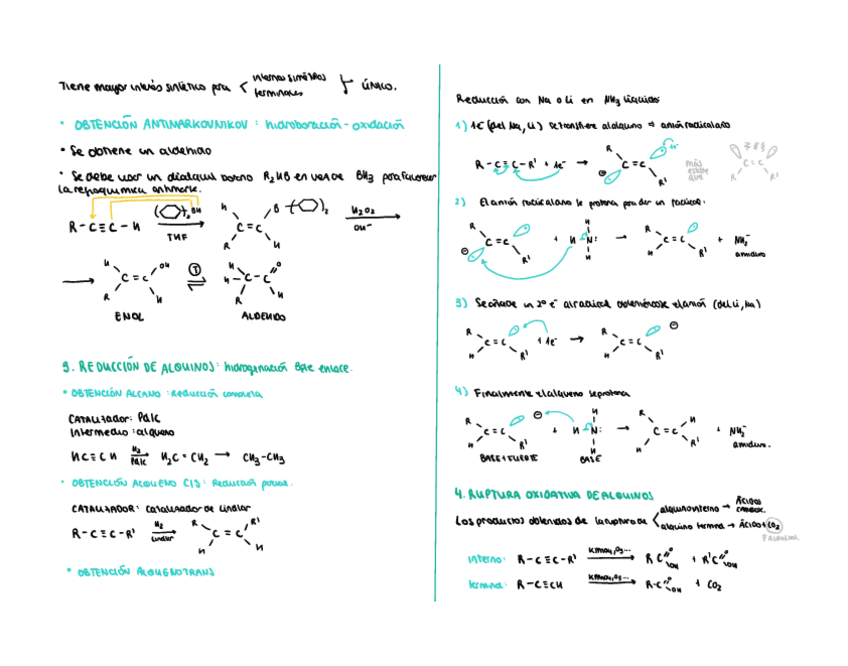 Tiene mayor interés sintético para < internos simétricos
terminales } único.
• OBTENCIÓN ANTIMARKOVNIKOV: hidroboración-oxidación
• Se obtiene un aldehído
• Se debe usar un dialquil borano R₂HB en vez de BH₃ para favorecer
la regioquímica antimark.
R-C≡C-H ( )₂BH
THF
H B-( )₂
C=C
R H
H₂O₂
OH⁻
H OH
C=C
R H
ENOL
(T)
H O
H-C-C
R H
ALDEHIDO
3. REDUCCIÓN DE ALQUINOS: hidrogenación triple enlace.
• OBTENCIÓN ALCANO: Reducción completa
CATALIZADOR: Pd/C
Intermedio: alqueno
HC≡CH H₂ Pd/C H₂C=CH₂ → CH₃-CH₃
• OBTENCIÓN ALQUENO CIS: Reducción parcial.
CATALIZADOR: Catalizador de Lindlar
R-C≡C-R' H₂ Lindlar R R'
C=C
H H
• OBTENCIÓN ALQUENO TRANS
Reducción con Na o Li en NH₃ líquidos
1) 1e⁻ (del Na, Li) se transfiere al alquino → anión radicalario
R-C≡C-R' + 1e⁻ → R e⁻
C=C
⊖ R'
más
estable
que
C=C
R R'
2) El anión radicalario se protona para dar un radical.
R
C=C
⊖ R'
+ H-N:
H
H
→ R
C=C
H R'
+ NH₂⁻
amiduro
3) Se añade un 2º e⁻ al radical obteniéndose el anión (del Li, Na)
R
C=C
H R'
+ 1e⁻ → R ⊖
C=C
H R'
4) Finalmente el alqueno se protona
R ⊖
C=C
H R'
BASE + FUERTE
+ H-N:
H
H
BASE
→ R H
C=C
H R'
+ NH₂⁻
amiduro.
4. RUPTURA OXIDATIVA DE ALQUINOS
Los productos obtenidos de la ruptura de < alquino interno → Ácidos carbox.
alquino terminal → Ácido + CO₂
Interno: R-C≡C-R' KMnO₄, O₃... RC=O OH + R'C=O OH
Terminal: R-C≡CH KMnO₄, O₃... R-C=O OH + CO₂